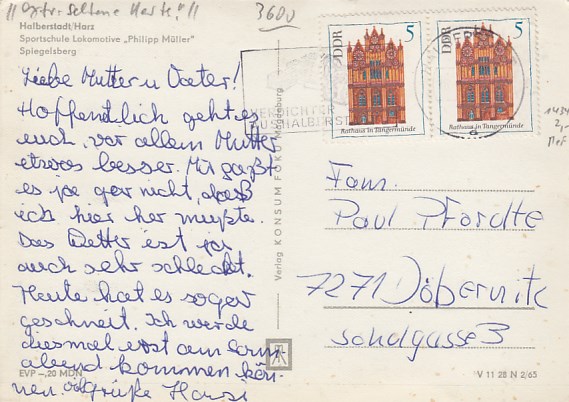 "Ospr. seltene Karte!"
3600
Halberstadt/Harz
Sportschule Lokomotive „Philipp Müller"
Spiegelsberg
Liebe Mutter u Vater!
Hoffendlich geht es
euch, vor allem Mutter
etwas besser. Mir paßt
es ja gar nicht, daß
ich hier her mußte.
Das Wetter ist ja
auch sehr schlecht.
Heute hat es sogar
geschneit. Ich werde
diesmal erst am Sonn-
abend kommen kön-
nen. viele Grüße Hansi
EVP -,20 MDN
Verlag KONSUM FOKU Magdeburg
DICHTER
AUS HALBERST
DDR 5
Rathaus in Tangermünde
DDR 5
Rathaus in Tangermünde
1434
2,-
Fam.
Paul Pfordte
7271 Döbernitz
Schulgasse 3
V 11 28 N 2/65